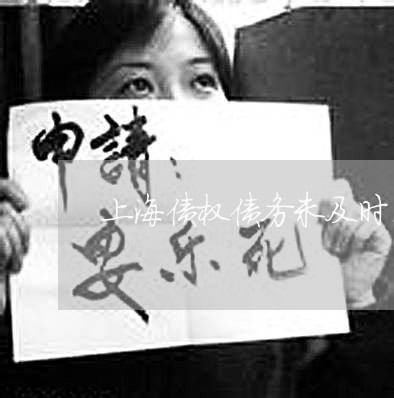 申請：
上海债权债务未及时
安乐死